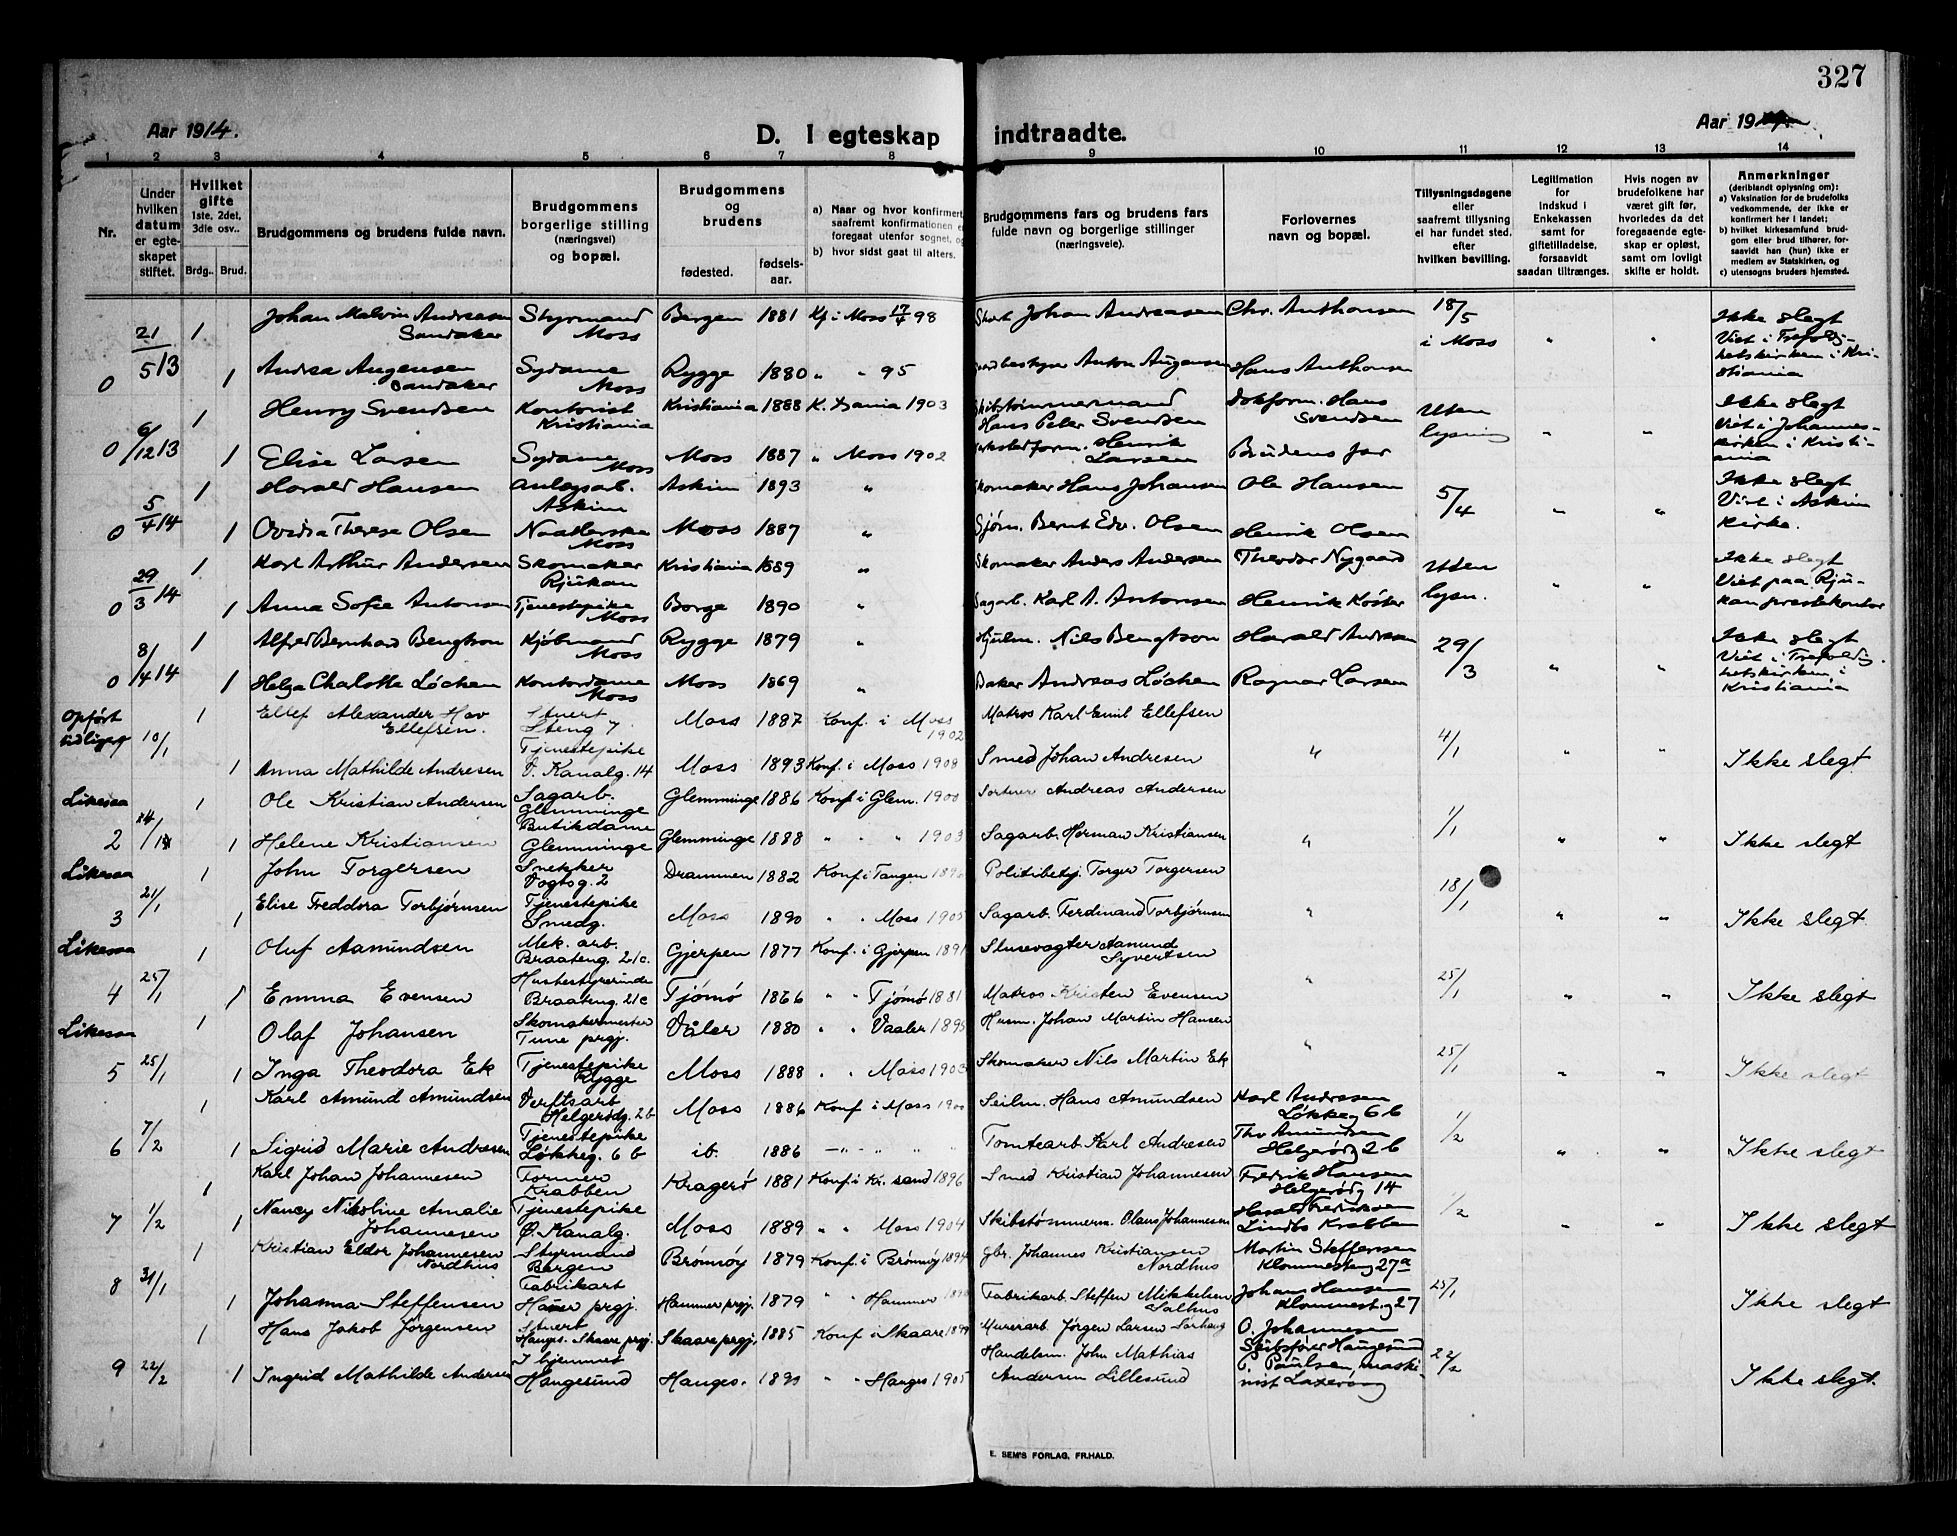 327
Aar 1914.
D. I egteskap indtraadte.
Aar 19
1 2 3 4 5 6 7 8 9 10 11 12 13 14
Nr.
Under hvilken datum er egteskapet stiftet.
Hvilket gifte 1ste, 2det, 3die osv..
Brdg. Brud.
Brudgommens og brudens fulde navn.
Brudgommens borgerlige stilling (næringsvei) og bopæl.
Brudgommens og brudens
fødested.
fødselsaar.
a) Naar og hvor konfirmert, saafremt konfirmationen er foregaat utenfor sognet, og
b) hvor sidst gaat til alters.
Brudgommens fars og brudens fars fulde navn og borgerlige stillinger (næringsveie).
Forlovernes navn og bopæl.
Tillysningsdagene eller saafremt tillysning ei har fundet sted, efter hvilken bevilling.
Legitimation for indskud i Enkekassen samt for giftetilladelse, forsaavidt saadan tiltrænges.
Hvis nogen av brudefolkene har været gift før, hvorledes da det foregaaende egteskap er opløst, samt om lovligt skifte er holdt.
Anmerkninger (deriblandt oplysning om): a) Vaksination for de brudefolks vedkommende, der ikke er konfirmert her i landet; b) hvilket kirkesamfund brudgom eller brud tilhører, forsaavidt han (hun) ikke er medlem av Statskirken, og c) utensogns bruders hjemsted.
21/5 13 1 Johan Malvin Andreasen Sandaker Styrmand Moss Bergen 1881 Kf i Moss 17/4 98 Johan Andreasen Chr. Anthonsen 18/5 i Moss " " Ikke slegt Viet i Trefoldighetskirken i Kristiania
0 1 Andrea Augensen Sandaker Sydame Moss Rygge 1880 " " 95 Anton Augensen Hans Anthonsen
6/12 13 1 Henry Svendsen Kontorist Kristiania Kristiania 1888 K. Xania 1903 Skibstømmermand Hans Peter Svendsen Dokform. Hans Svendsen Uten lysning " " Ikke slegt Viet i Johanneskirken i Kristiania
0 1 Elise Larsen Sydame Moss Moss 1887 " Moss 1902 Henrik Larsen Brudens far
5/4 14 1 Harald Hansen Anlegsarb. Askim Askim 1893 " Skomaker Hans Johansen Ole Hansen 5/4 " " Ikke slegt Viet i Askim Kirke.
0 1 Ovidia Therese Olsen Naatlerske Moss Moss 1887 " Sjøm. Bernt Edv. Olsen Henrik Olsen
29/3 14 1 Karl Arthur Andersen Skomaker Rjukan Kristiania 1889 " Skomaker Anders Andersen Theodor Nygaard Uten lysn. " " Ikke slegt Viet paa Rjukan prestekontor
0 1 Anna Sofie Antonsen Tjenestepike Moss Borge 1890 " Sagarb. Karl A. Antonsen Henrik Köster
8/4 14 1 Alfred Bernhard Bengtson Kjøbmand Moss Rygge 1879 " Hjulm. Nils Bengtson Harald Andersen 29/3 " " Ikke slegt Viet i Trefoldighetskirken i Kristiania
0 1 Helga Charlotte Løchen Kontordame Moss Moss 1869 " Baker Andreas Løchen Ragnar Larsen
Opført tidligere 10/1 1 Ellef Alexander Hov Ellefsen. Stuert Steng 7 Moss 1887 Konf. i Moss 1902 Matros Karl Emil Ellefsen " 4/1 " " Ikke slegt
1 Anna Mathilde Andresen Tjenestepike V. Kanalg. 14 Moss 1893 Konf. i Moss 1908 Smed Johan Andresen
Likesaa 2 1 Ole Kristian Andersen Sagarb. Glemminge Glemminge 1886 Konf i Glem. 1900 Andreas Andersen " 1/1 " " Ikke slegt
1 Helene Kristiansen Butikdame Glemminge Glemminge 1888 " " " 1903 Sagarb. Herman Kristiansen
Likesaa 3 21/1 1 John Torgersen Snekker Vogtsg. 2 Drammen 1882 Konf i Tangen Politibetj. Torger Torgersen " 18/1 " " Ikke slegt
1 Elise Freddora Torbjørnsen Tjenestepike Smedg. Moss 1890 " " Moss 1905 Sagarb. Ferdinand Torbjørnsen
Likesaa 4 25/1 1 Oluf Aamundsen Mek. arb. Braateng. 21c. Gjerpen 1877 Konf. i Gjerpen 1891 Slusevogter Aamund Syvertsen " 25/1 " " Ikke slegt
1 Emma Evensen Husbestyrerinde Braateng. 21c Tjømø 1866 " " Tjømø 1881 Matros Kristen Evensen
Likesaa 5 25/1 1 Olaf Johansen Skomakermester Tune prgj. Våler 1880 " " Vaaler 1895 Husm. Johan Martin Hansen " 25/1 " " Ikke slegt
1 Inga Theodora Ek Tjenestepike Rygge Moss 1888 " " Moss 1903 Skomaker Nils Martin Ek
6 7/2 1 Karl Amund Amundsen Verftsarb Helgerødg. 2b Moss 1886 Konf i Moss Seilm. Hans Amundsen Karl Andresen Løkkeg 6b 1/2 " " Ikke slegt
1 Sigrid Marie Andresen Tjenestepike Løkkeg. 6b ib. 1886 " " " " Tomtearb Karl Andresen Thv Amundsen Helgerødg 2b
7 1/2 1 Karl Johan Johannesen Former Krabben Kragerø 1881 Konf i Kr. sand 1896 Smed Kristian Johannesen Fredrik Hansen Helgerødg 14 1/2 " " Ikke slegt
1 Nancy Nikoline Amalie Johannesen Tjenestepike Ø. Kanalg. Moss 1889 " " Moss 1904 Skibstømmerm. Olaus Johannesen Harald Fredriksen Lindbo Krabben
8 31/1 1 Kristian Eldor Johannesen Nordhus Styrmand Bergen Brønnøy 1879 Konf. i Brønnøy 1894 Gbr. Johannes Kristiansen Nordhus Martin Steffensen Klommesteng 27a 25/1 Ikke slegt
1 Johanna Steffensen Fabrikarb Hamer prgj. Hammer prgj. 1879 " " Hammer Fabrikarb. Steffen Mikkelsen Salhus Johan Hansen Klommesteng 27
9 22/2 1 Hans Jakob Jørgensen Stuert Hauges. Skaare prgj. Skaare prgj. 1885 Konf i Skaare 1899 Murerarb. Jørgen Larsen Sørhaug O. Johannesen Skibsfører Haugesund 22/2 Ikke slegt.
1 Ingrid Mathilde Andersen I hjemmet Haugesund Hauges. " " Hauges 1905 Handelsm. John Mathias Andersen Lillesund P. Paulsen, maskinist
E. SEM'S FORLAG, FR.HALD.